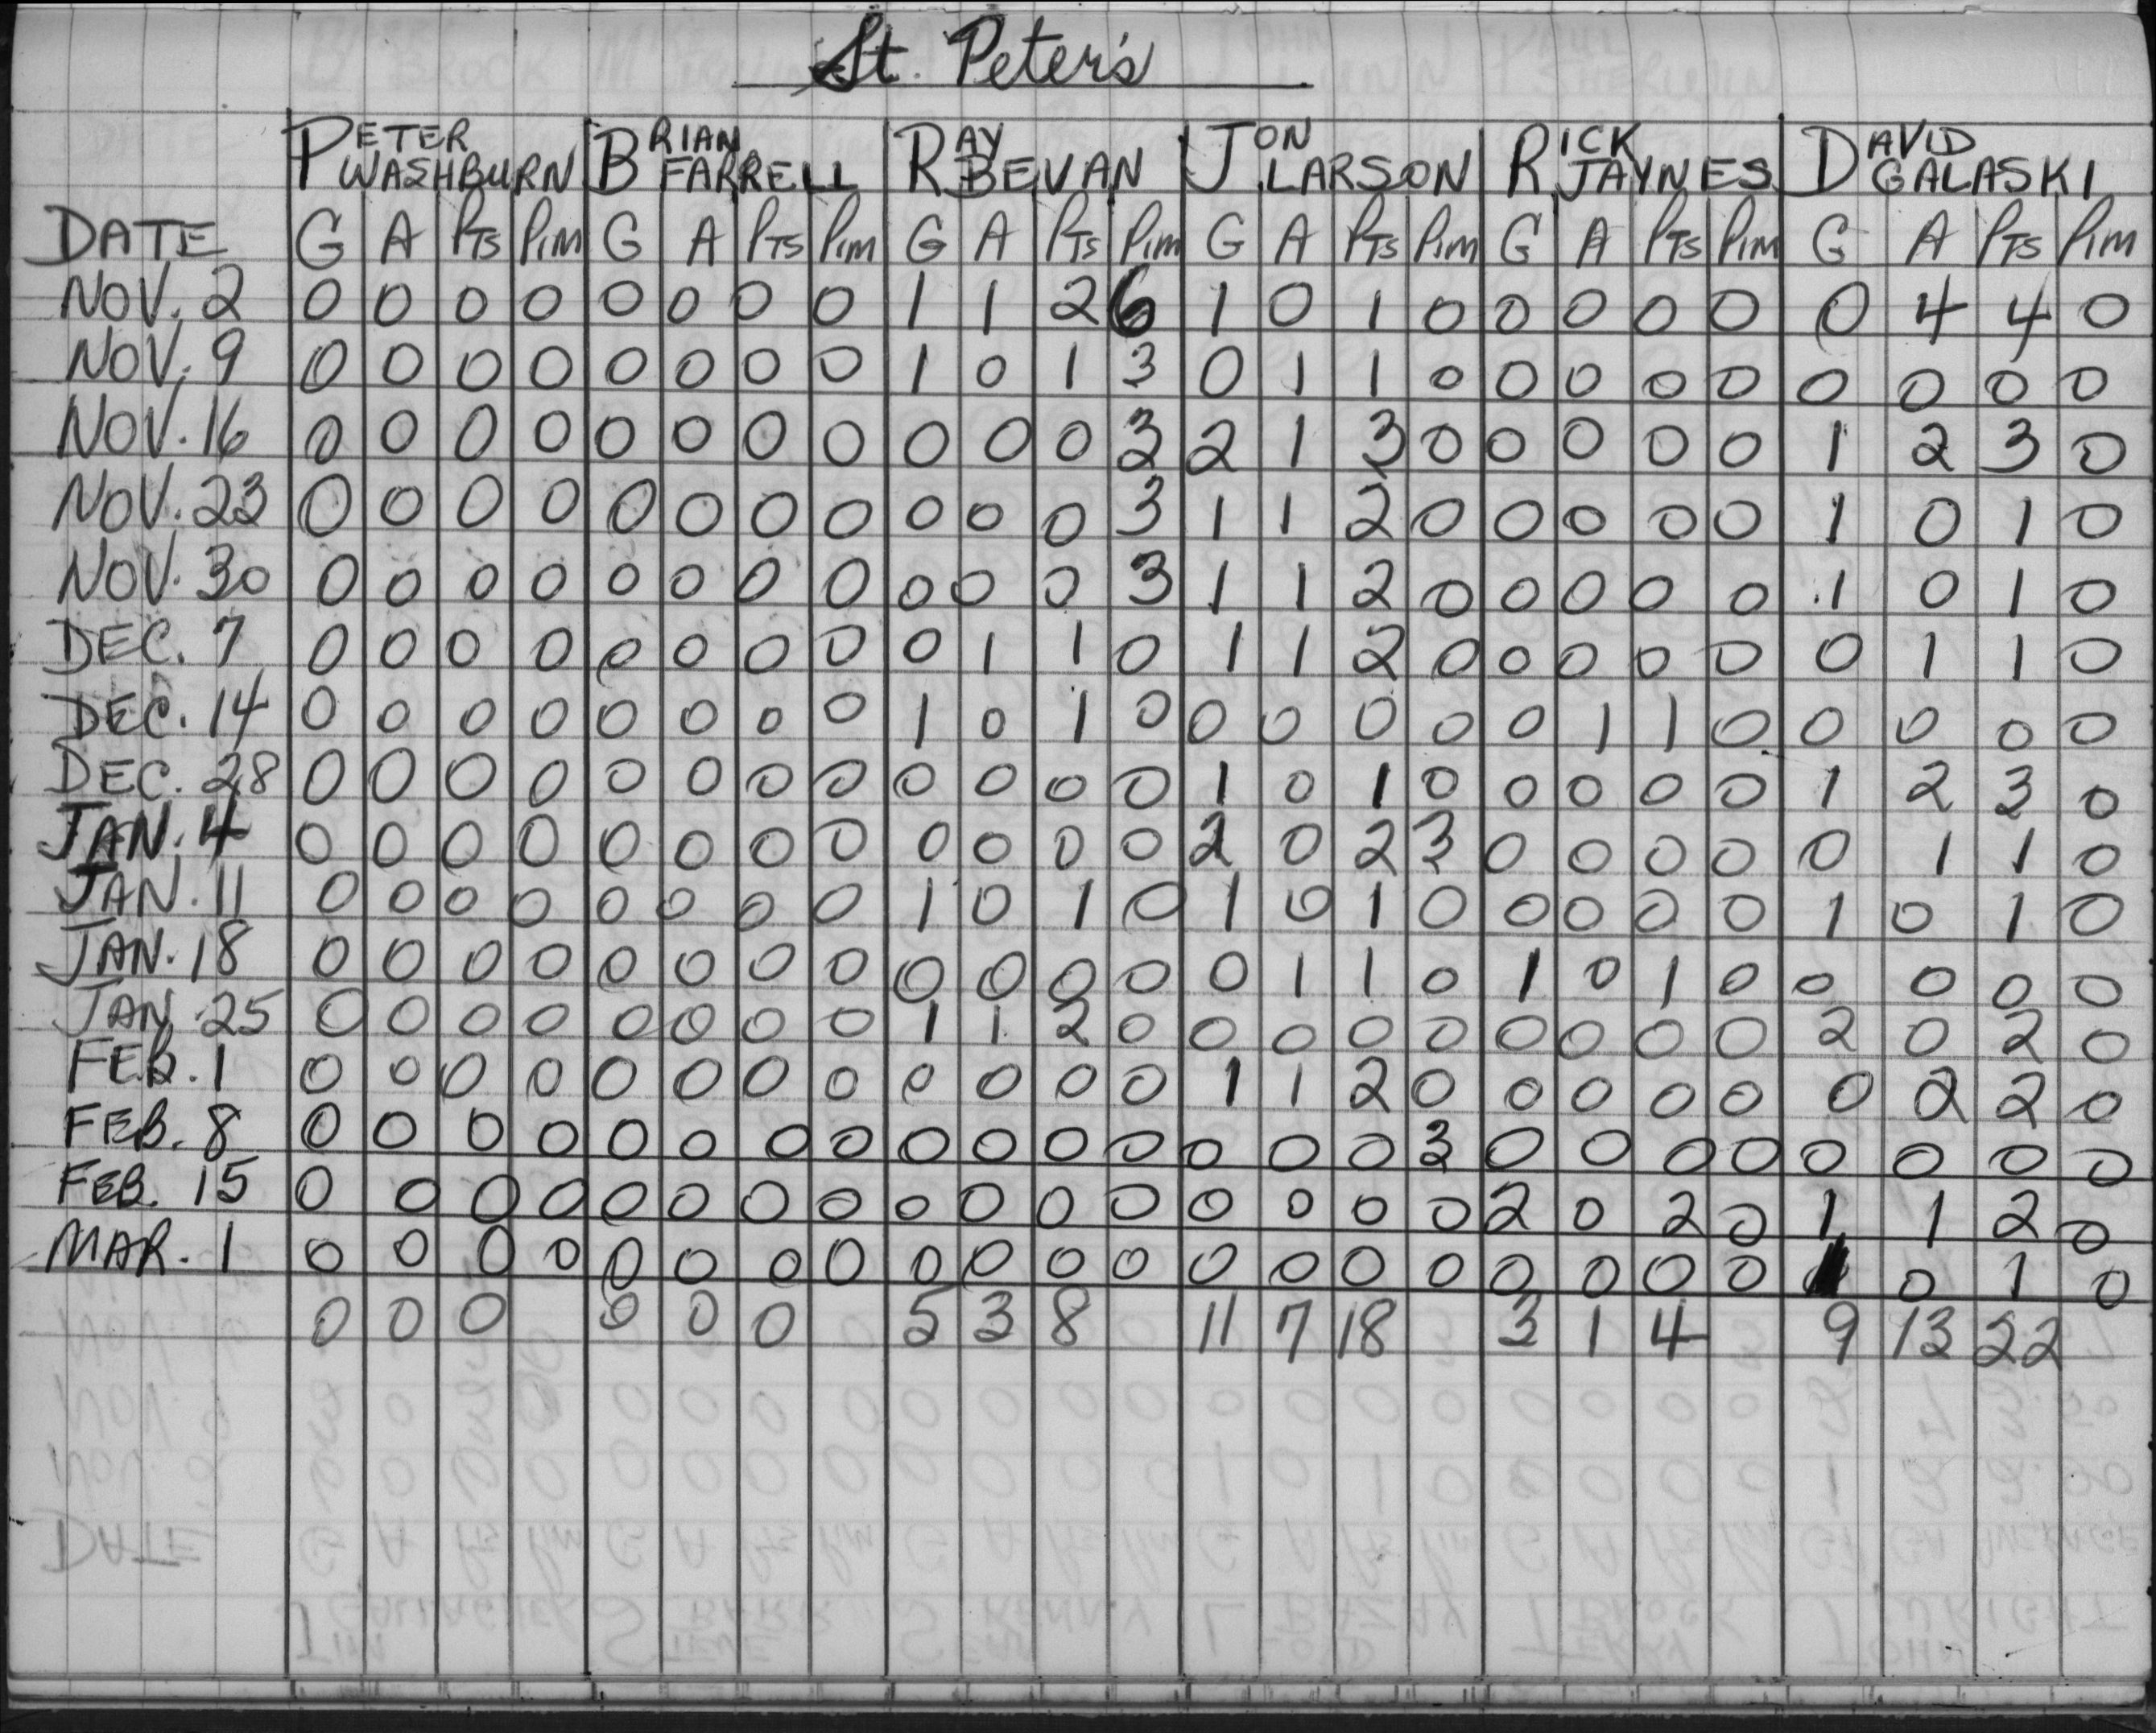 St. Peter's
PETER WASHBURN BRIAN FARRELL RAY BEVAN JON LARSON RICK JAYNES DAVID GALASKI
DATE G A PTS PIM G A PTS PIM G A PTS PIM G A PTS PIM G A PTS PIM G A PTS PIM
NOV. 2 0 0 0 0 0 0 0 0 1 1 2 6 1 0 1 0 0 0 0 0 0 4 4 0
NOV. 9 0 0 0 0 0 0 0 0 1 0 1 3 0 1 1 0 0 0 0 0 0 0 0 0
NOV. 16 0 0 0 0 0 0 0 0 0 0 0 3 2 1 3 0 0 0 0 0 1 2 3 0
NOV. 23 0 0 0 0 0 0 0 0 0 0 0 3 1 1 2 0 0 0 0 0 1 0 1 0
NOV. 30 0 0 0 0 0 0 0 0 0 0 0 3 1 1 2 0 0 0 0 0 1 0 1 0
DEC. 7 0 0 0 0 0 0 0 0 0 1 1 0 1 1 2 0 0 0 0 0 0 1 1 0
DEC. 14 0 0 0 0 0 0 0 0 1 0 1 0 0 0 0 0 0 1 1 0 0 0 0 0
DEC. 28 0 0 0 0 0 0 0 0 0 0 0 0 1 0 1 0 0 0 0 0 1 2 3 0
JAN. 4 0 0 0 0 0 0 0 0 0 0 0 0 2 0 2 3 0 0 0 0 0 1 1 0
JAN. 11 0 0 0 0 0 0 0 0 1 0 1 0 1 0 1 0 0 0 0 0 1 0 1 0
JAN. 18 0 0 0 0 0 0 0 0 0 0 0 0 0 1 1 0 1 0 1 0 0 0 0 0
JAN. 25 0 0 0 0 0 0 0 0 1 1 2 0 0 0 0 0 0 0 0 0 2 0 2 0
FEB. 1 0 0 0 0 0 0 0 0 0 0 0 0 1 1 2 0 0 0 0 0 0 2 2 0
FEB. 8 0 0 0 0 0 0 0 0 0 0 0 0 0 0 0 3 0 0 0 0 0 0 0 0
FEB. 15 0 0 0 0 0 0 0 0 0 0 0 0 0 0 0 0 2 0 2 0 1 1 2 0
MAR. 1 0 0 0 0 0 0 0 0 0 0 0 0 0 0 0 0 0 0 0 0 1 0 1 0
0 0 0 0 0 0 5 3 8 11 7 18 3 1 4 9 13 22